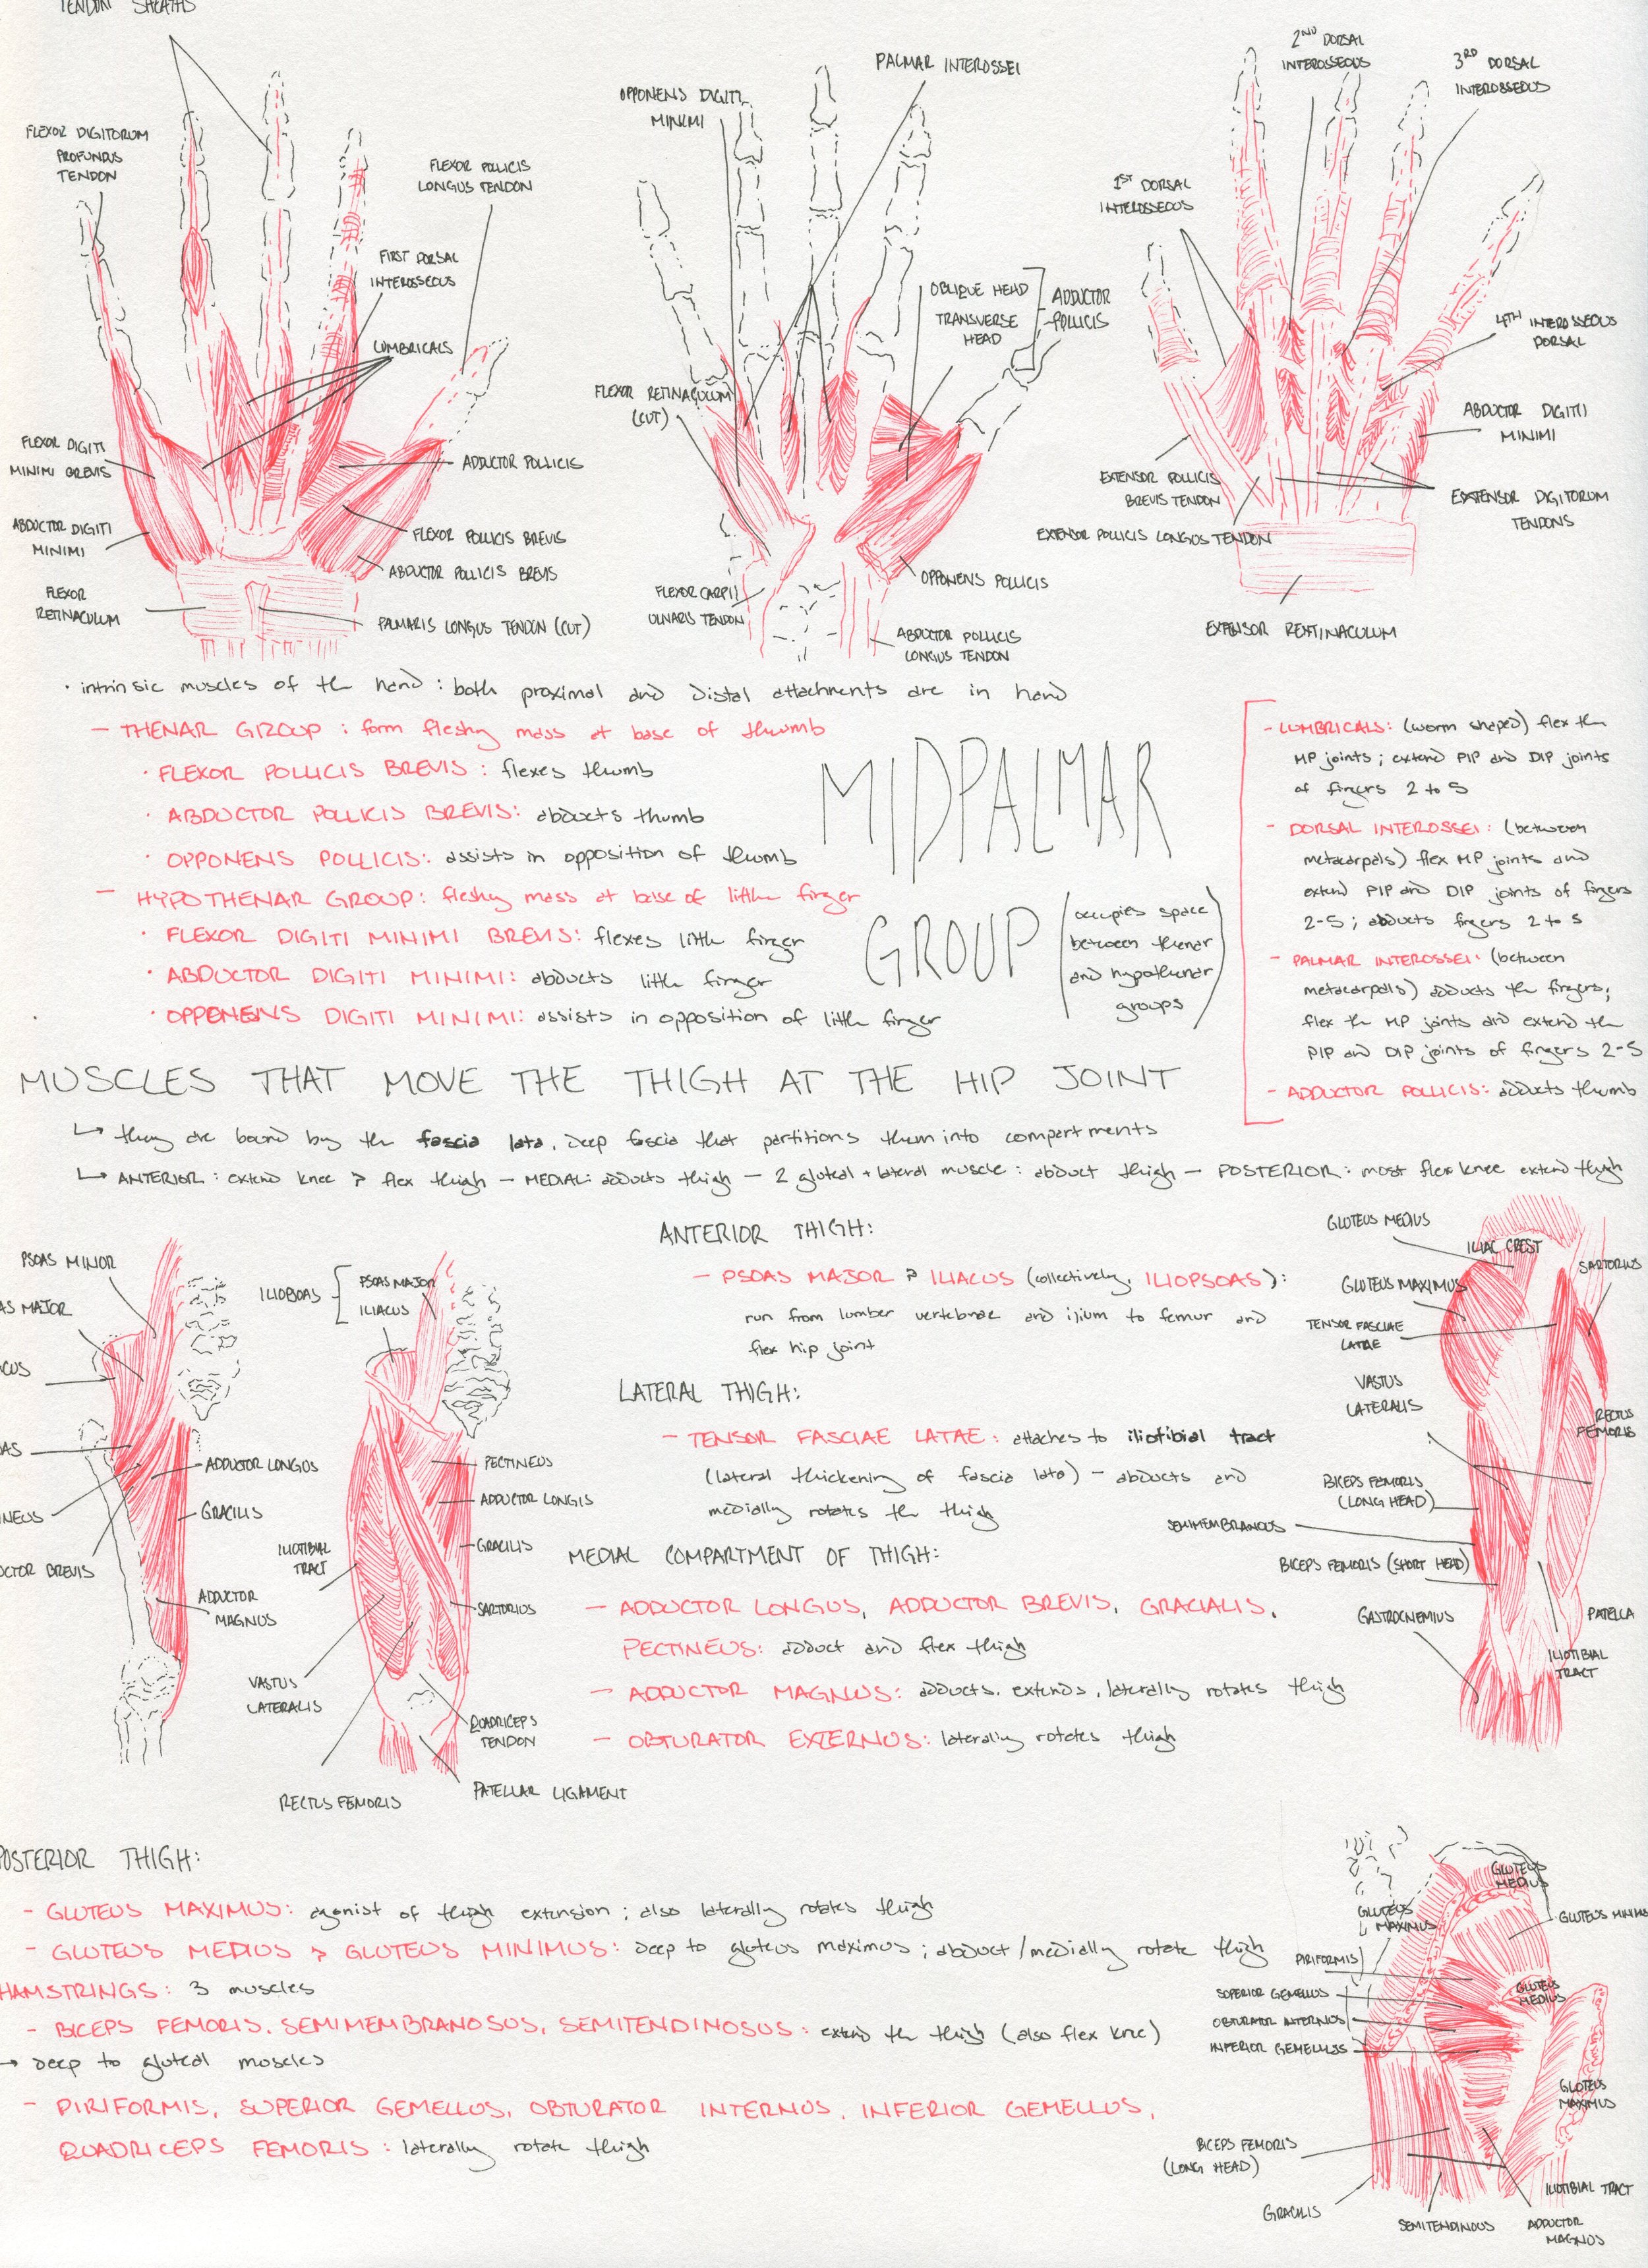 TENDON SHEATHS
FLEXOR DIGITORUM
PROFUNDUS
TENDON
FLEXOR POLLICIS
LONGUS TENDON
FIRST DORSAL
INTEROSSEOUS
LUMBRICALS
FLEXOR DIGITI
MINIMI BREVIS
ADDUCTOR POLLICIS
ABDUCTOR DIGITI
MINIMI
FLEXOR POLLICIS BREVIS
ABDUCTOR POLLICIS BREVIS
FLEXOR
RETINACULUM
PALMARIS LONGUS TENDON (CUT)
PALMAR INTEROSSEI
OPPONENS DIGITI
MINIMI
OBLIQUE HEAD
TRANSVERSE
HEAD
ADDUCTOR
POLLICIS
FLEXOR RETINACULUM
(CUT)
FLEXOR CARPII
ULNARIS TENDON
OPPONENS POLLICIS
ABDUCTOR POLLICIS
LONGUS TENDON
2ND DORSAL
INTEROSSEOUS
3RD DORSAL
INTEROSSEOUS
1ST DORSAL
INTEROSSEOUS
4TH INTEROSSEOUS
DORSAL
ABDUCTOR DIGITI
MINIMI
EXTENSOR POLLICIS
BREVIS TENDON
EXTENSOR DIGITORUM
TENDONS
EXTENSOR POLLICIS LONGUS TENDON
RETINACULUM
· intrinsic muscles of the hand : both proximal and distal attachments are in hand
— THENAR GROUP : form fleshy mass at base of thumb
· FLEXOR POLLICIS BREVIS : flexes thumb
· ABDUCTOR POLLICIS BREVIS: abducts thumb
· OPPONENS POLLICIS: assists in opposition of thumb
— HYPOTHENAR GROUP: fleshy mass at base of little finger
· FLEXOR DIGITI MINIMI BREVIS: flexes little finger
· ABDUCTOR DIGITI MINIMI: abducts little finger
· OPPONENS DIGITI MINIMI: assists in opposition of little finger
MIDPALMAR
GROUP
(occupies space
between thenar
and hypothenar
groups)
— LUMBRICALS: (worm shaped) flex the
MP joints ; extend PIP and DIP joints
of fingers 2 to 5
— DORSAL INTEROSSEI: (between
metacarpals) flex MP joints and
extend PIP and DIP joints of fingers
2-5 ; abducts fingers 2 to 5
— PALMAR INTEROSSEI: (between
metacarpals) adducts the fingers;
flex the MP joints and extend the
PIP and DIP joints of fingers 2-5
— ADDUCTOR POLLICIS: adducts thumb
MUSCLES THAT MOVE THE THIGH AT THE HIP JOINT
↳ they are bound by the fascia lata, deep fascia that partitions them into compartments
↳ ANTERIOR : extend knee & flex thigh — MEDIAL: adducts thigh — 2 gluteal + lateral muscle : abduct thigh — POSTERIOR : most flex knee extend thigh
PSOAS MINOR
AS MAJOR
CUS
AS
NEUS
CTOR BREVIS
ADDUCTOR LONGUS
GRACILIS
ADDUCTOR
MAGNUS
PSOAS MAJOR
ILIACUS
PECTINEUS
ADDUCTOR LONGIS
GRACILIS
ILIOTIBIAL
TRACT
SARTORIUS
VASTUS
LATERALIS
QUADRICEPS
TENDON
RECTUS FEMORIS
PATELLAR LIGAMENT
ANTERIOR THIGH:
— PSOAS MAJOR & ILIACUS (collectively, ILIOPSOAS):
run from lumber vertebrae and ilium to femur and
flex hip joint
LATERAL THIGH:
— TENSOR FASCIAE LATAE: attaches to iliotibial tract
(lateral thickening of fascia lata) — abducts and
medially rotates the thigh
MEDIAL COMPARTMENT OF THIGH:
— ADDUCTOR LONGUS, ADDUCTOR BREVIS, GRACIALIS,
PECTINEUS: adduct and flex thigh
— ADDUCTOR MAGNUS: adducts, extends, laterally rotates thigh
— OBTURATOR EXTERNUS: laterally rotates thigh
GLUTEUS MEDIUS
ILIAC CREST
SARTORIUS
GLUTEUS MAXIMUS
TENSOR FASCIAE
LATAE
VASTUS
LATERALIS
RECTUS
FEMORIS
BICEPS FEMORIS
(LONG HEAD)
SEMIMEMBRANOUS
BICEPS FEMORIS (SHORT HEAD)
GASTROCNEMIUS
PATELLA
ILIOTIBIAL
TRACT
POSTERIOR THIGH:
— GLUTEUS MAXIMUS: agonist of thigh extension ; also laterally rotates thigh
— GLUTEUS MEDIUS & GLUTEUS MINIMUS: deep to gluteus maximus ; abduct/medially rotate thigh
HAMSTRINGS: 3 muscles
— BICEPS FEMORIS, SEMIMEMBRANOSUS, SEMITENDINOSUS : extend the thigh (also flex knee)
→ deep to gluteal muscles
— PIRIFORMIS, SUPERIOR GEMELLUS, OBTURATOR INTERNUS, INFERIOR GEMELLUS,
QUADRICEPS FEMORIS : laterally rotate thigh
GLUTEUS
MEDIUS
GLUTEUS
MAXIMUS
GLUTEUS MINIMU
PIRIFORMIS
SUPERIOR GEMELLUS
GLUTEUS
MEDIUS
OBTURATOR INTERNUS
INFERIOR GEMELLUS
GLUTEUS
MAXIMUS
BICEPS FEMORIS
(LONG HEAD)
GRACILIS
SEMITENDINOUS
ILIOTIBIAL TRACT
ADDUCTOR
MAGNUS